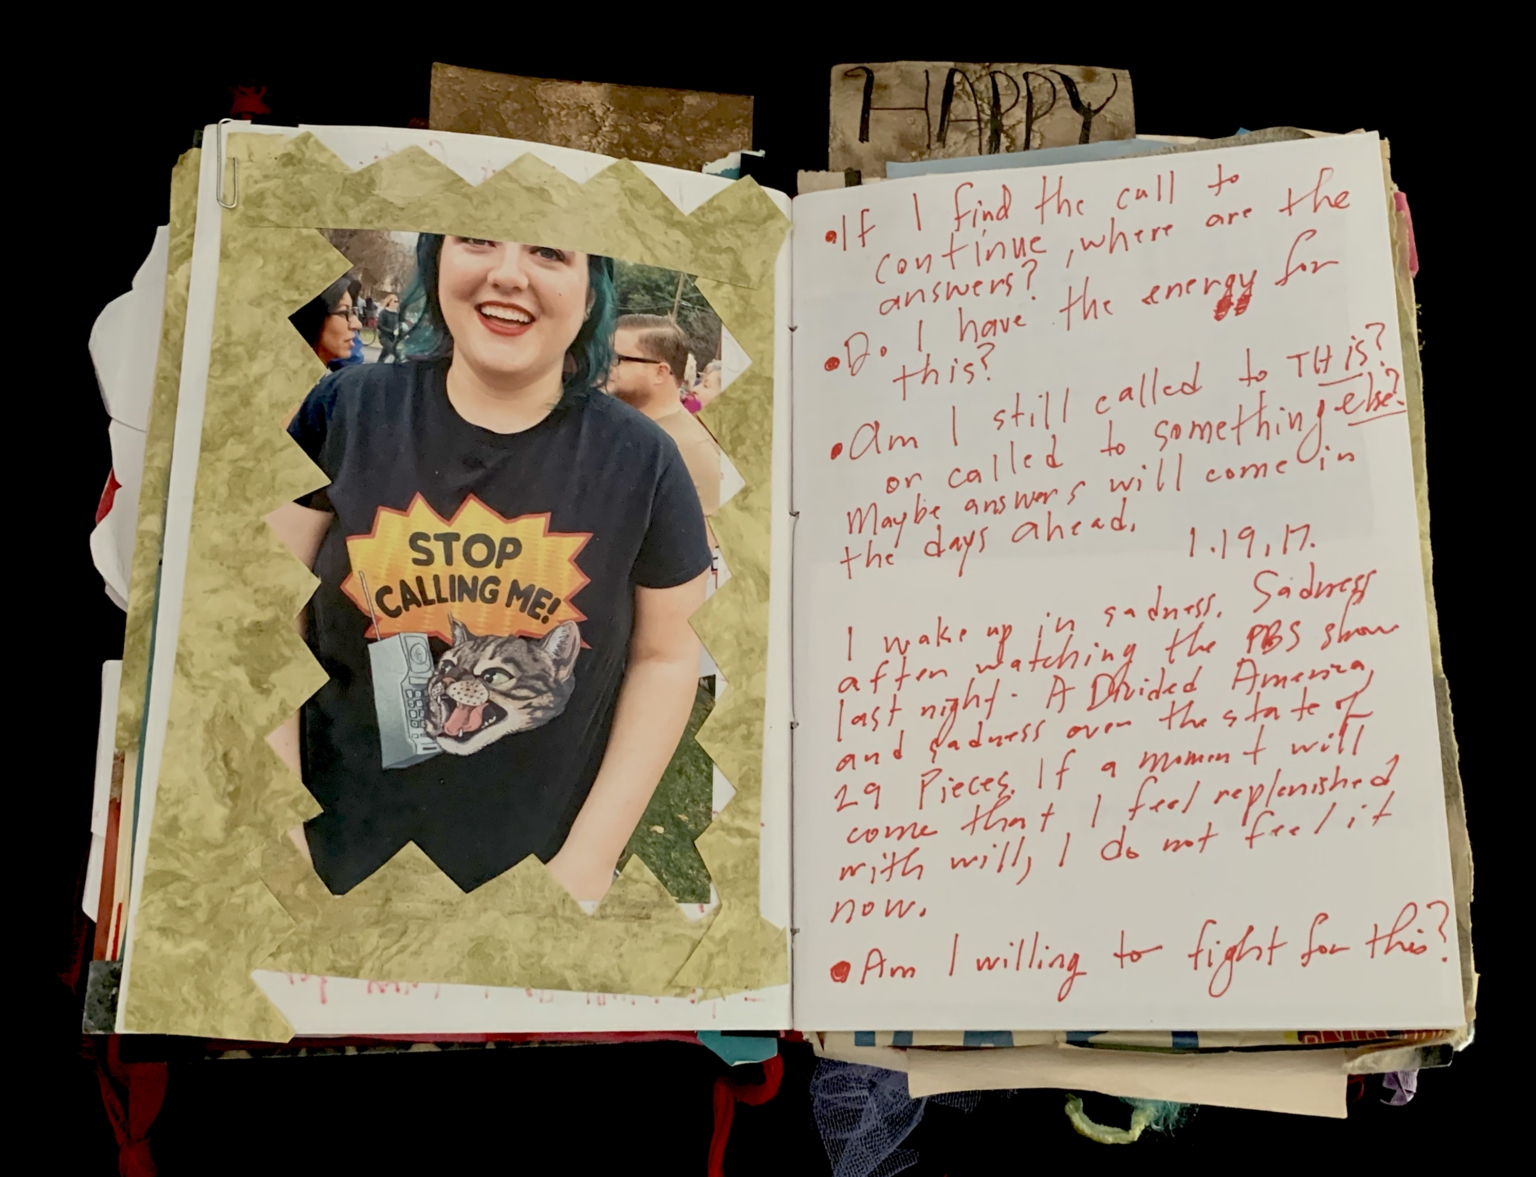 HAPPY
STOP
CALLING ME!
•If I find the call to
continue, where are the
answers?
•Do I have the energy for
this?
•Am I still called to THis?
or called to something else?
Maybe answers will come in
the days ahead.
1.19.17.
I wake up in sadness. Sadness
after watching the PBS show
last night. A Divided America,
and sadness over the state of
29 Pieces. If a moment will
come that I feel replenished
with will, I do not feel it
now.
•Am I willing to fight for this?